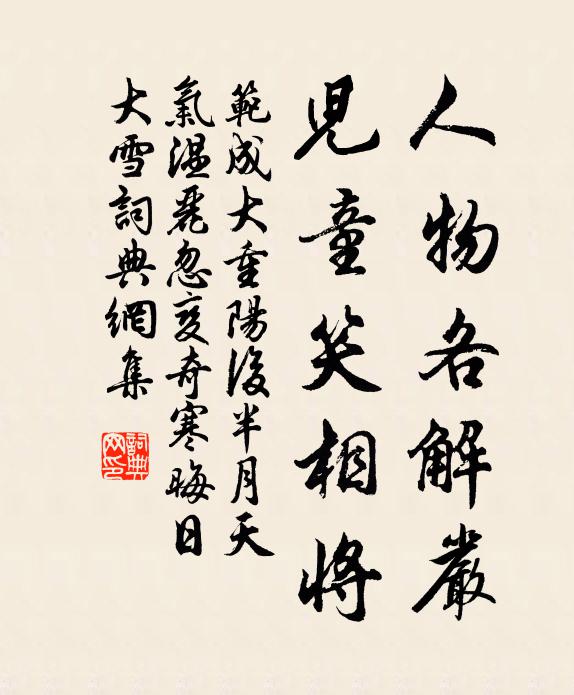 人物各解嚴
兒童笑相將
範成大重陽後半月天
氣溫麗忽變奇寒晦日
大雪詞典網集
詞典网印